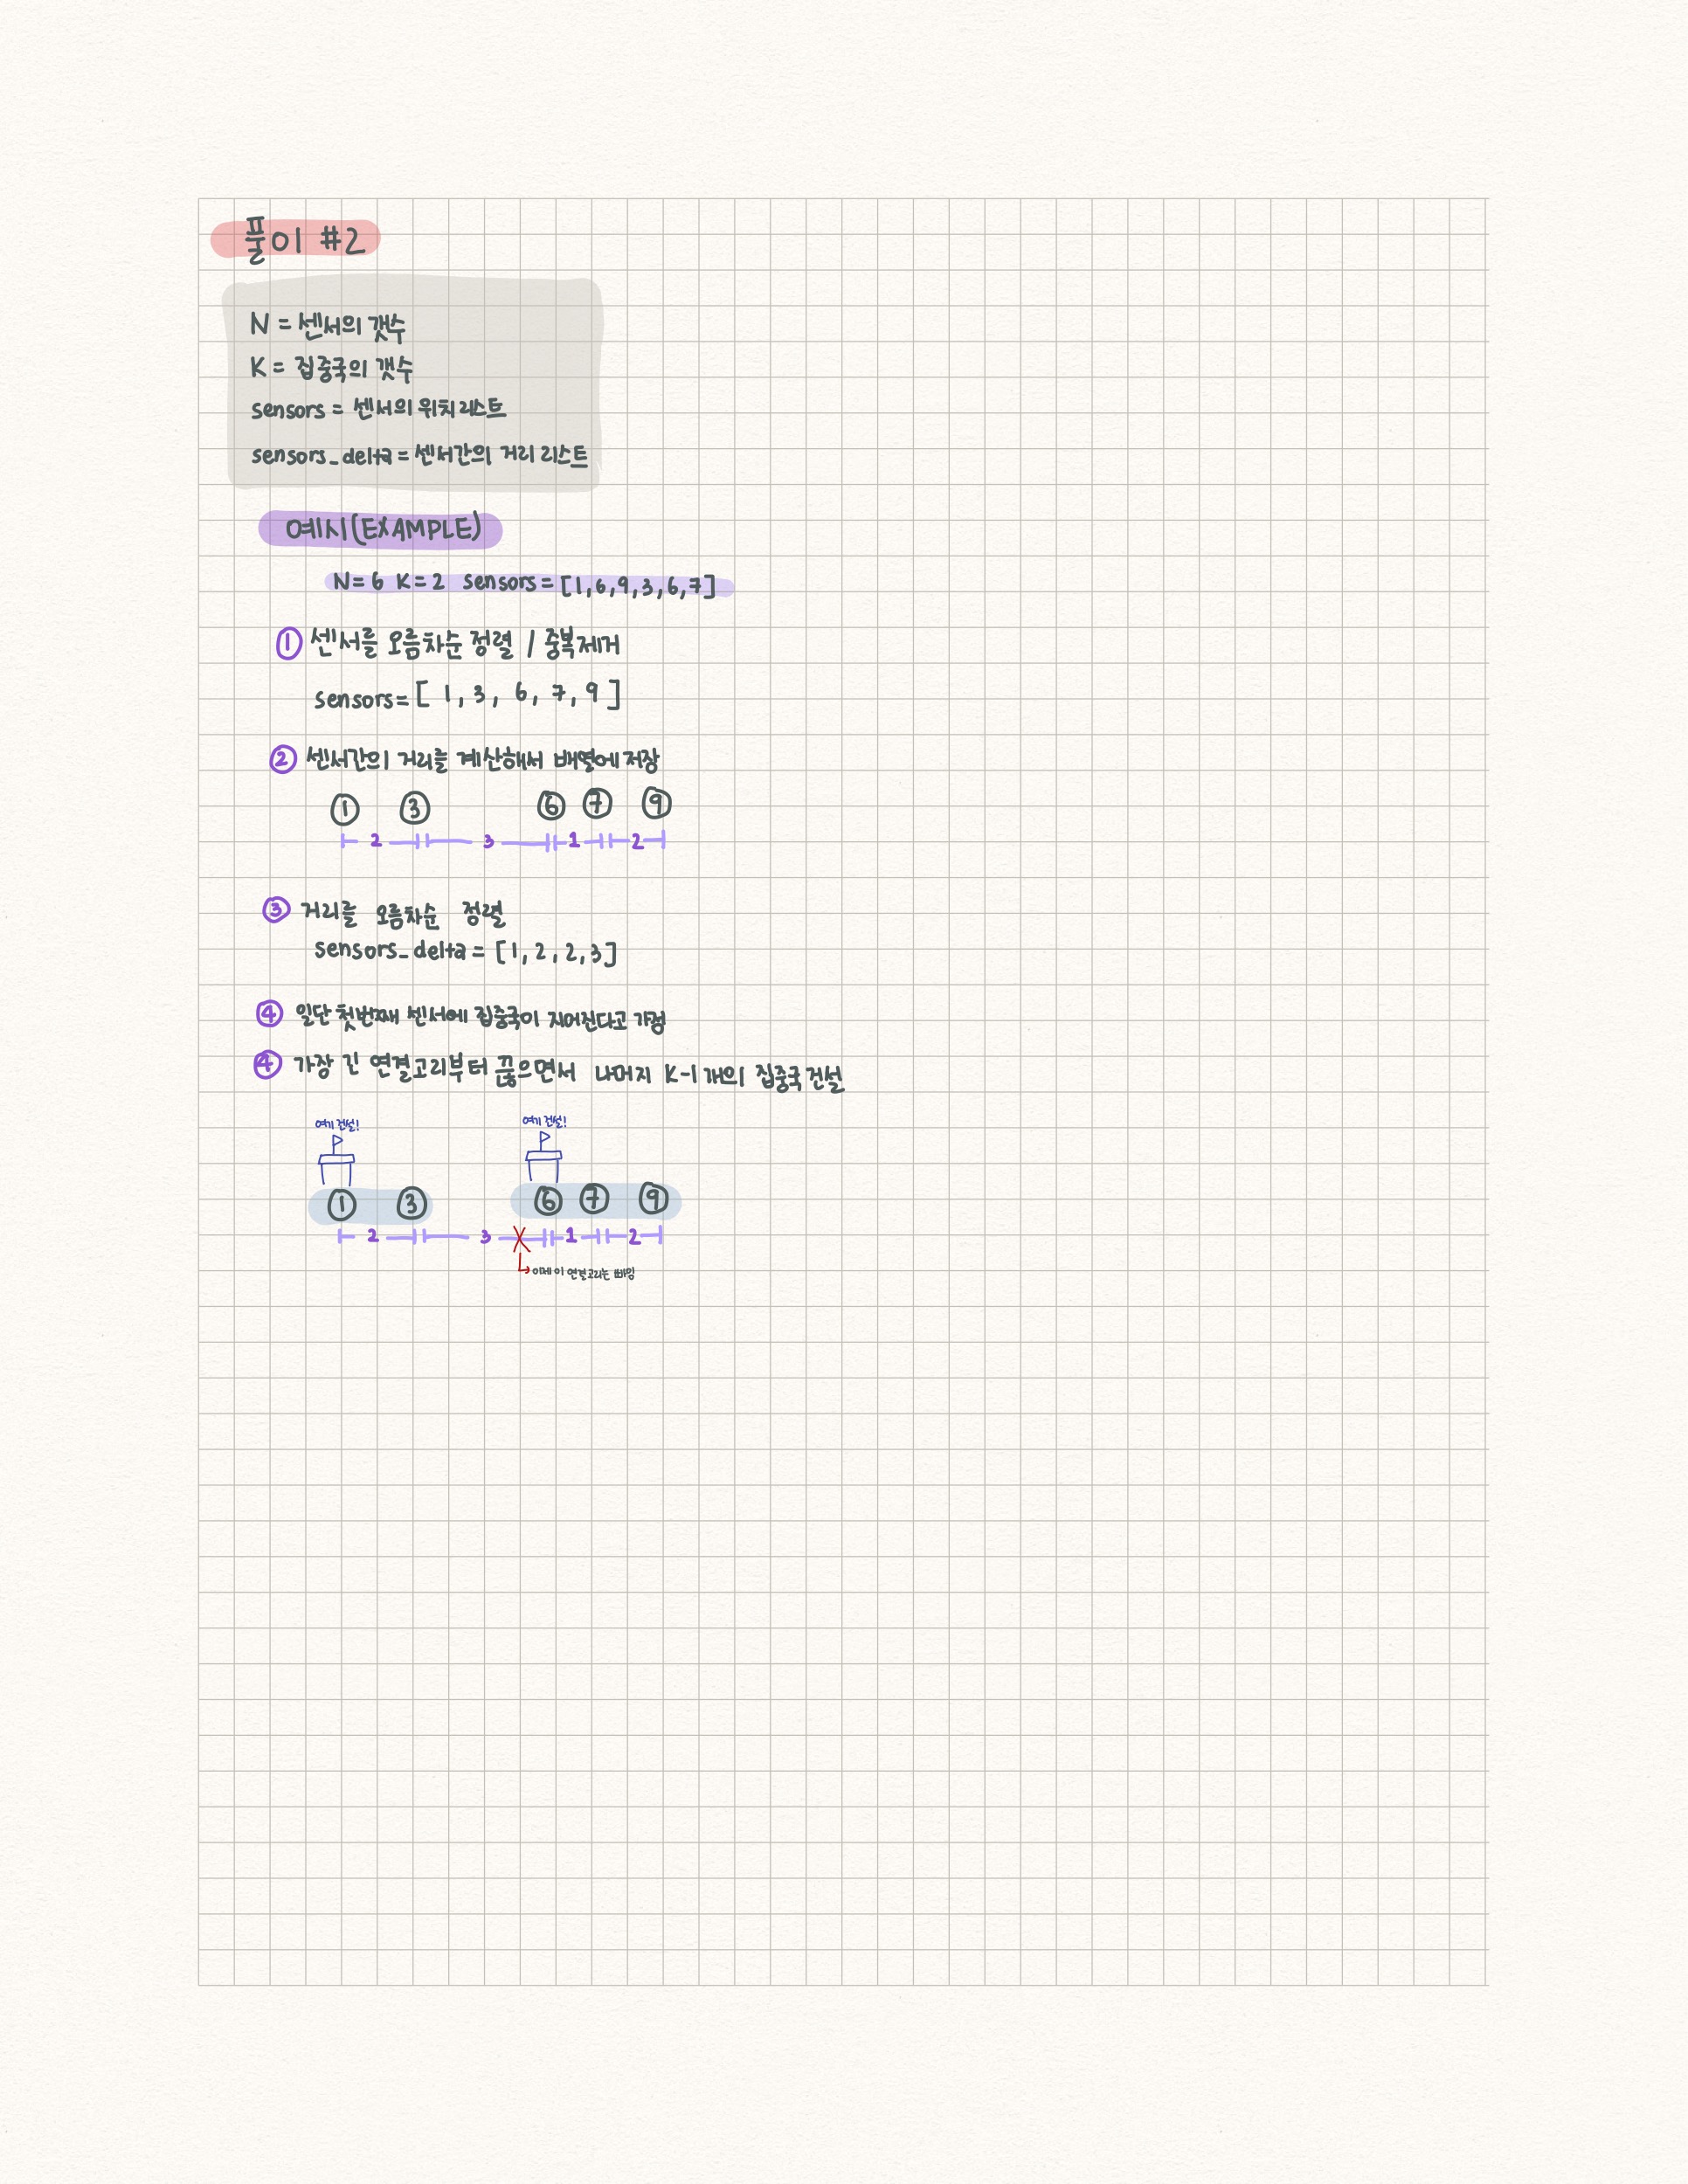 풀이 #2
N = 센서의 갯수
K = 집중국의 갯수
sensors = 센서의 위치 리스트
sensors_delta = 센서간의 거리 리스트
예시(EXAMPLE)
N=6 K=2 sensors=[1,6,9,3,6,7]
① 센서를 오름차순 정렬 / 중복제거
sensors=[ 1, 3, 6, 7, 9 ]
② 센서간의 거리를 계산해서 배열에 저장
① ③ ⑥ ⑦ ⑨
2 3 1 2
③ 거리를 오름차순 정렬
sensors_delta = [1, 2, 2, 3]
④ 일단 첫번째 센서에 집중국이 지어진다고 가정
④ 가장 긴 연결고리부터 끊으면서 나머지 K-1개의 집중국 건설
여기 건설! 여기 건설!
① ③ ⑥ ⑦ ⑨
2 3 1 2
이제 이 연결고리는 빠짐